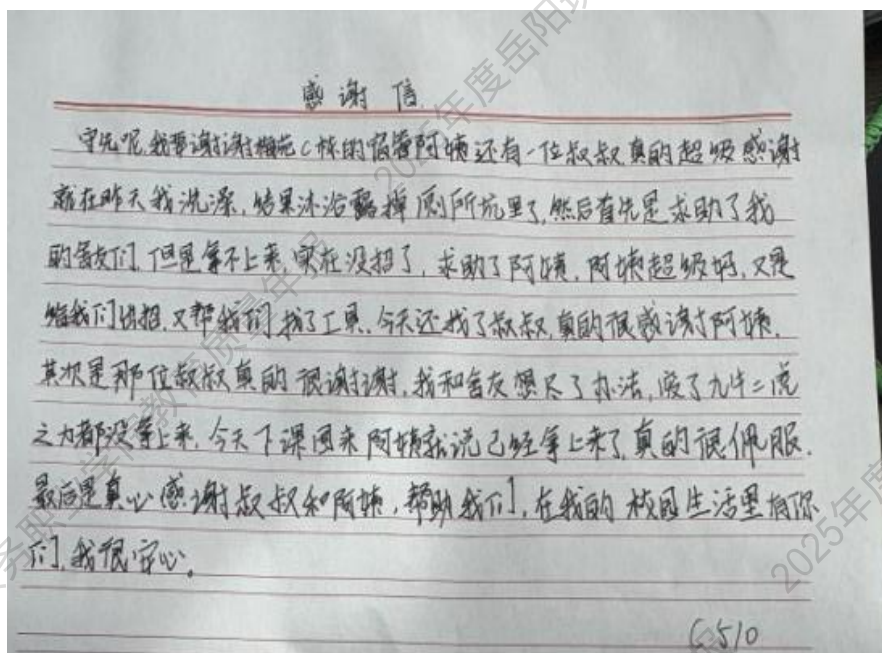 感谢信
首先呢,我要谢谢梅苑C栋的宿管阿姨还有一位叔叔真的超级感谢
就在昨天我洗澡,结果沐浴露掉厕所坑里了,然后首先是求助了我
的舍友们,但是拿不上来,实在没招了,求助了阿姨,阿姨超级好,又是
给我们出招,又帮我们找了工具,今天还找了叔叔,真的很感谢阿姨.
其次是那位叔叔真的很谢谢,我和舍友想尽了办法,废了九牛二虎
之力都没拿上来,今天下课回来阿姨就说已经拿上来了,真的很佩服.
最后是真心感谢叔叔和阿姨,帮助我们,在我的校园生活里有你
们,我很安心。
C510
2025年度岳阳
2025年度